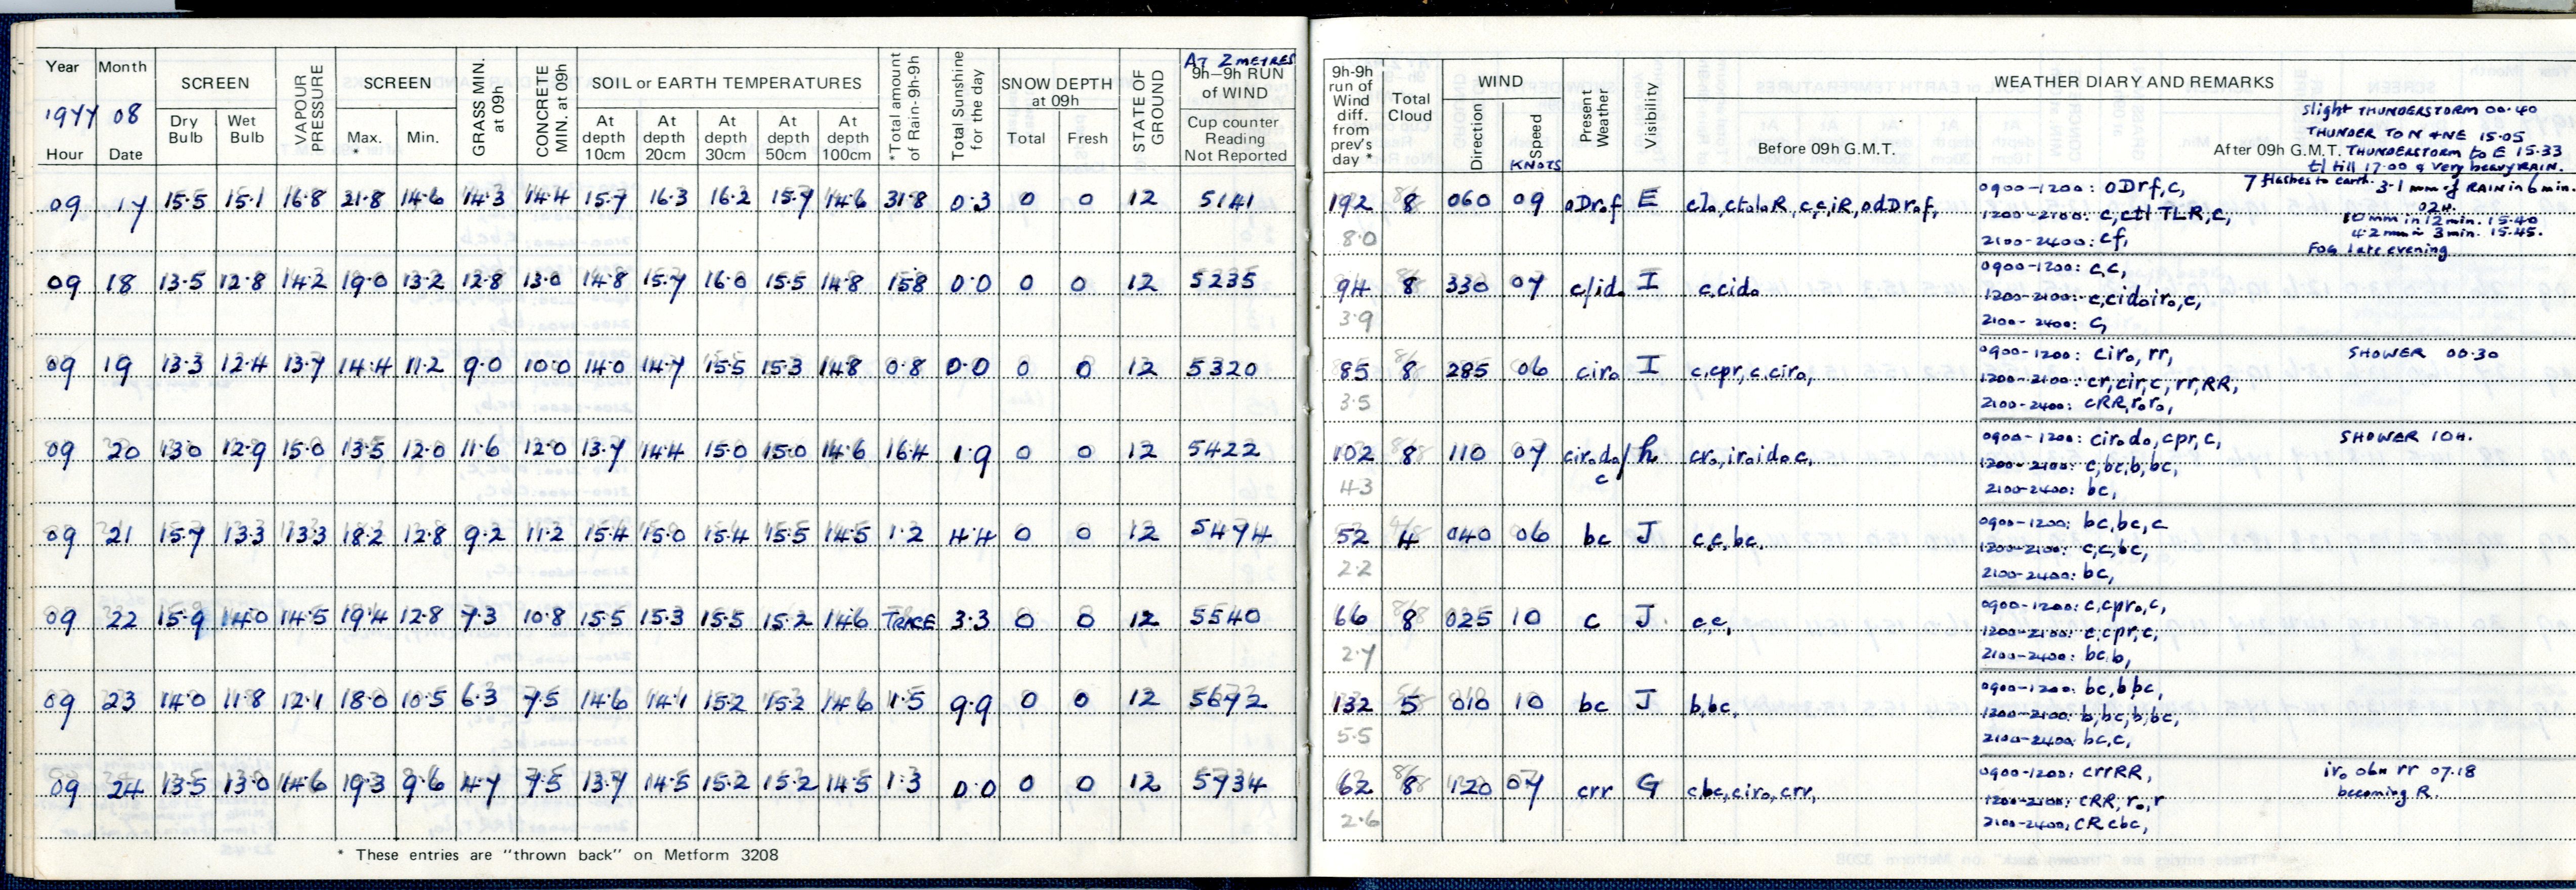 Year Month SCREEN VAPOUR PRESSURE SCREEN GRASS MIN. at 09h CONCRETE MIN. at 09h SOIL or EARTH TEMPERATURES *Total amount of Rain-9h-9h Total Sunshine for the day SNOW DEPTH at 09h STATE OF GROUND AT 2 METRES 9h-9h RUN of WIND
1977 08 Dry Bulb Wet Bulb Max. * Min. At depth 10cm At depth 20cm At depth 30cm At depth 50cm At depth 100cm Total Fresh Cup counter Reading Not Reported
Hour Date
09 17 15.5 15.1 16.8 21.8 14.6 14.3 14.4 15.7 16.3 16.2 15.7 14.6 31.8 0.3 0 0 12 5141
09 18 13.5 12.8 14.2 19.0 13.2 12.8 13.0 14.8 15.7 16.0 15.5 14.8 15.8 0.0 0 0 12 5235
09 19 13.3 12.4 13.7 14.4 11.2 9.0 10.0 14.0 14.7 15.5 15.3 14.8 0.8 0.0 0 0 12 5320
09 20 13.0 12.9 15.0 13.5 12.0 11.6 12.0 13.7 14.4 15.0 15.0 14.6 16.4 1.9 0 0 12 5422
09 21 15.7 13.3 13.3 18.2 12.8 9.2 11.2 15.4 15.0 15.4 15.5 14.5 1.2 4.4 0 0 12 5474
09 22 15.9 14.0 14.5 19.4 12.8 7.3 10.8 15.5 15.3 15.5 15.2 14.6 TRACE 3.3 0 0 12 5540
09 23 14.0 11.8 12.1 18.0 10.5 6.3 7.5 14.6 14.1 15.2 15.2 14.6 1.5 9.9 0 0 12 5672
09 24 13.5 13.0 14.6 19.3 9.6 4.7 7.5 13.7 14.5 15.2 15.2 14.5 1.3 0.0 0 0 12 5734
* These entries are "thrown back" on Metform 3208
9h-9h run of Wind diff. from prev's day * Total Cloud WIND Direction Speed KNOTS Present Weather Visibility WEATHER DIARY AND REMARKS
Before 09h G.M.T. After 09h G.M.T.
Slight THUNDERSTORM 00.40
THUNDER TO N + NE 15.05
THUNDERSTORM to E 15.33
tl till 17.00 & very heavy RAIN.
7 flashes to earth. 3.1 mm of RAIN in 6 min.
02H.
10 mm in 12 min. 15.40
4.2 mm in 3 min. 15.45.
FOG late evening
192 8 060 09 oDrof E clo,ctoloR,c,c,iR,odDrof,
8.0
0900-1200: oDrf,c,
1200-2100: c,ctl TLR,c,
2100-2400: cf,
94 8 330 07 c/ido I c,cido
3.9
0900-1200: c,c,
1200-2100: c,cidoiro,c,
2100-2400: c,
85 8 285 06 ciro I c,cpr,c,ciro,
3.5
0900-1200: ciro, rr,
1200-2100: cr,cir,c,rr,RR,
2100-2400: cRR,roro,
SHOWER 00.30
102 8 110 07 cirodo/c h cro,iroidoc,
4.3
0900-1200: cirodo,cpr,c,
1200-2100: c,bc,b,bc,
2100-2400: bc,
SHOWER 10H.
52 4 040 06 bc J c,c,bc,
2.2
0900-1200: bc,bc,c
1200-2100: c,c,bc,
2100-2400: bc,
66 8 025 10 c J c,c,
2.7
0900-1200: c,cpro,c,
1200-2100: c,cpr,c,
2100-2400: bc,b,
132 5 010 10 bc J b,bc,
5.5
0900-1200: bc,b,bc,
1200-2100: b,bc,b,bc,
2100-2400: bc,c,
62 8 120 07 crr G c,bc,ciro,crr,
2.6
0900-1200: crrRR,
1200-2100: CRR, ro,r
2100-2400: CRcbc,
iro 06H rr 07.18
becoming R.